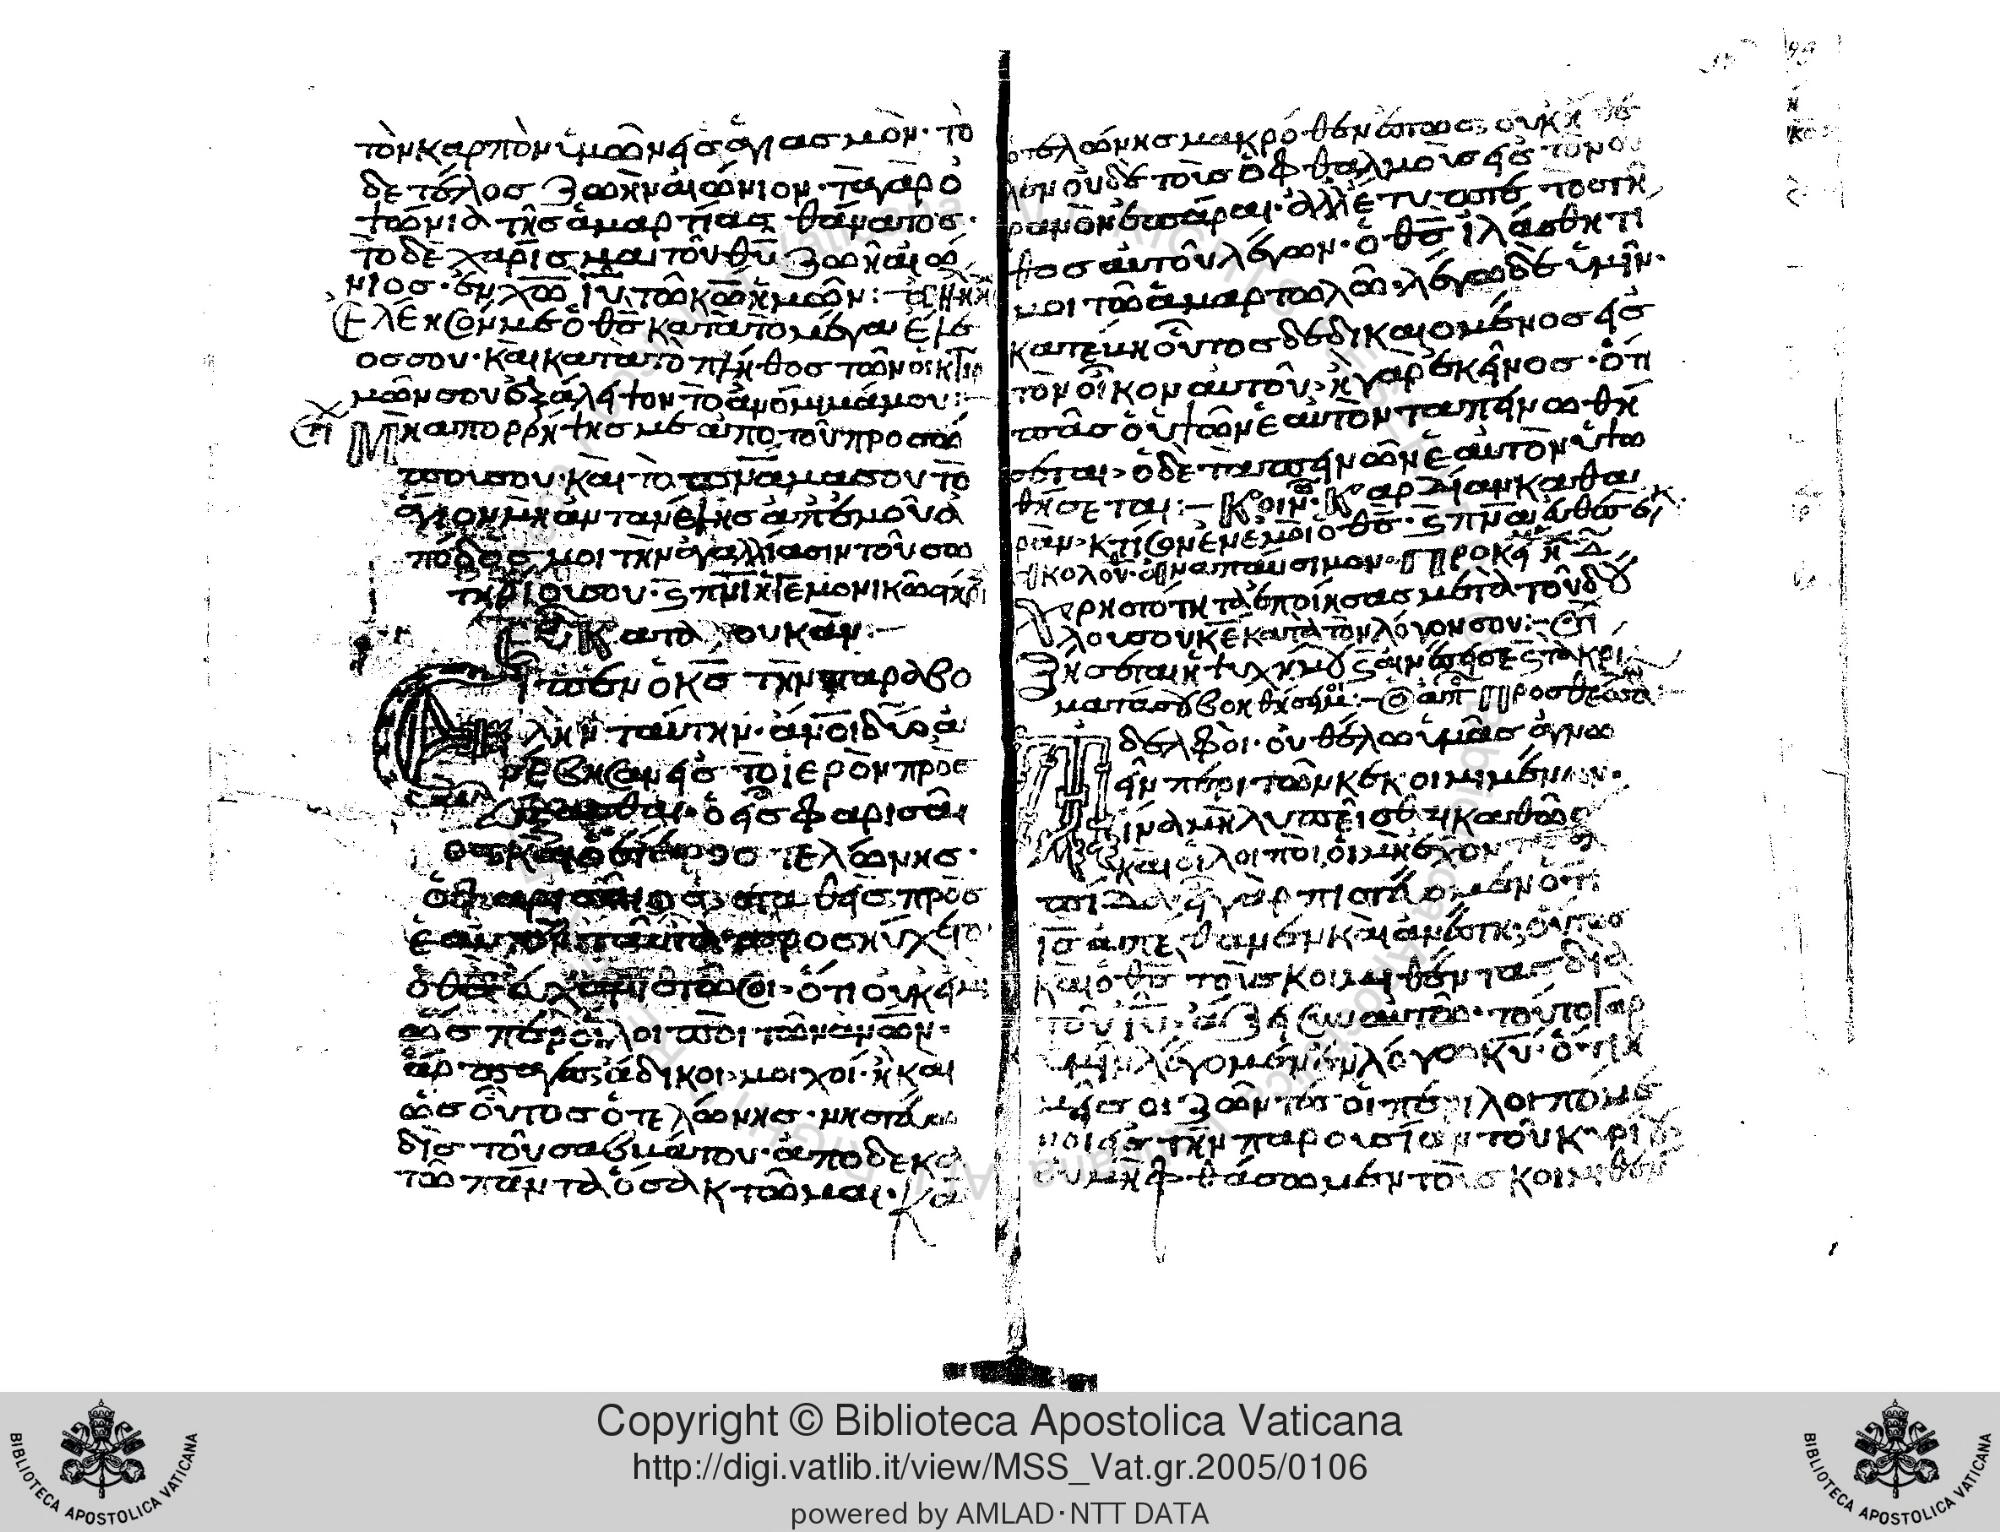 τὸν καρπὸν ὑμῶν εἰς ἁγιασμὸν· τὸ
δε τέλος ζωὴν αἰώνιον· τὰ γὰρ ὀ
ψώνια τῆς ἁμαρτίας θάνατος·
τὸ δὲ χάρισμα τοῦ θυ ζωὴ αἰώ
νιος· ἐν χω ιυ τῶ κω ἡμῶν:
Ἐλέησόν με ὁ θς κατὰ τὸ μέγα ἔλε
οσσου· καὶ κατὰ τὸ πλῆθος τῶν οἰκτιρ
μῶν σου ἐξάλειψον τὸ ἀνόμιμά μου:
Μὴ απορρίψης με ἀπὸ τοῦ προσώ
που σου· καὶ τὸ πνᾶμα σου τὸ
ἅγιον μὴ ἀντανέλης ἀπ' ἐμοῦ ἀ
πόδος μοι τὴν ἀγαλλίασιν τοῦ σω
τηρίου σου· ϛ πνι ἡγεμονικῶ
κατα λουκὰν:
Εἶπεν ὁ κς τὴν παραβο
λὴν ταύτην· ἄνοι δύο ἀ
νέβησαν εἰς τὸ ἱερὸν προσε
ὁ εἷς φαρισαῖ
ος καὶ ὁ ἕτερος τελώνης·
ὁ φαρισαῖος σταθεὶς πρὸς
ἑαυτὸν ταῦτα προσηύχετο·
ὁ θς εὐχαριστῶ σοι· ὅτι οὐκ εἰμὶ
ὡς περ οἱ λοιποὶ τῶν ανων·
ἅρπαγες ἄδικοι· μοιχοί· ἢ καὶ
ὡς οὗτος ὁ τελώνης· νηστεύω
δὶς τοῦ σαββάτου· ἀποδεκα
τῶ πάντα ὅσα κτῶμαι· Κα
ὁ τελώνης μακρόθεν ἑστὼς, οὐκ ἤθε
λεν οὐδὲ τοὺς ὀφθαλμοὺς εἰς τὸν οὐ
ρανὸν ἐπάραι· ἀλλ' ἔτυπτε τὸ στῆ
θος αὐτοῦ λέγων· ὁ θς ἱλάσθητί
μοι τῶ ἁμαρτωλῶ· λέγω δὲ ὑμῖν·
κατέβη οὗτος δεδικαιομένος εἰς
τὸν οἶκον αὐτοῦ· ἢ γὰρ ἐκεῖνος· ὅτι
πᾶς ὁ ὑψῶν ἑαυτὸν ταπεινωθή
σεται· ὁ δὲ ταπεινῶν ἑαυτὸν ὑψω
θήσεται:- Κοιν· Καρδίαν καθα
ρὰν· κτίσον ἐν ἐμοὶ ὁ θς· ϛ πνᾶ εὐθὲς
ἀναπαύσιμον· Προκεί
Χρηστότητα ἐποίησας μετὰ τοῦ δού
λου σου κε κατὰ τὸν λόγον σου:
Ζήσεται ἡ ψυχή μου ϛ αἰνέσει σε ϛ τὰ κρί
ματά σου βοηθήσει μοι:- Ὁ απ Προς θεσσα:
Ἀδελφοὶ· οὐ θέλω ὑμᾶς ἀγνο
εῖν περὶ τῶν κεκοιμιμένων·
ἵνα μὴ λυπεῖσθαι καθὼς
καὶ οἱ λοιποὶ, οἱ μὴ ἔχοντες
ἐλπίδα· εἰ γὰρ πιστεύομεν ὅτι
ις ἀπέθανεν καὶ ἀνέστη, οὕτως
καὶ ὁ θς τοὺς κοιμηθέντας διὰ
τοῦ ιυ· ἄξει σὺν αὐτῶ· τοῦτο γὰρ
ὑμῖν λέγομεν ἐν λόγω κυ· ὅτι ἡ
μεῖς οἱ ζῶντες οἱ περιλοιπόμε
νοι εἰς τὴν παρουσίαν τοῦ κυρίου
οὐ μὴ φθάσωμεν τοὺς κοιμηθέν
Copyright © Biblioteca Apostolica Vaticana
http://digi.vatlib.it/view/MSS_Vat.gr.2005/0106
powered by AMLAD·NTT DATA
BIBLIOTECA APOSTOLICA VATICANA
BIBLIOTECA APOSTOLICA VATICANA